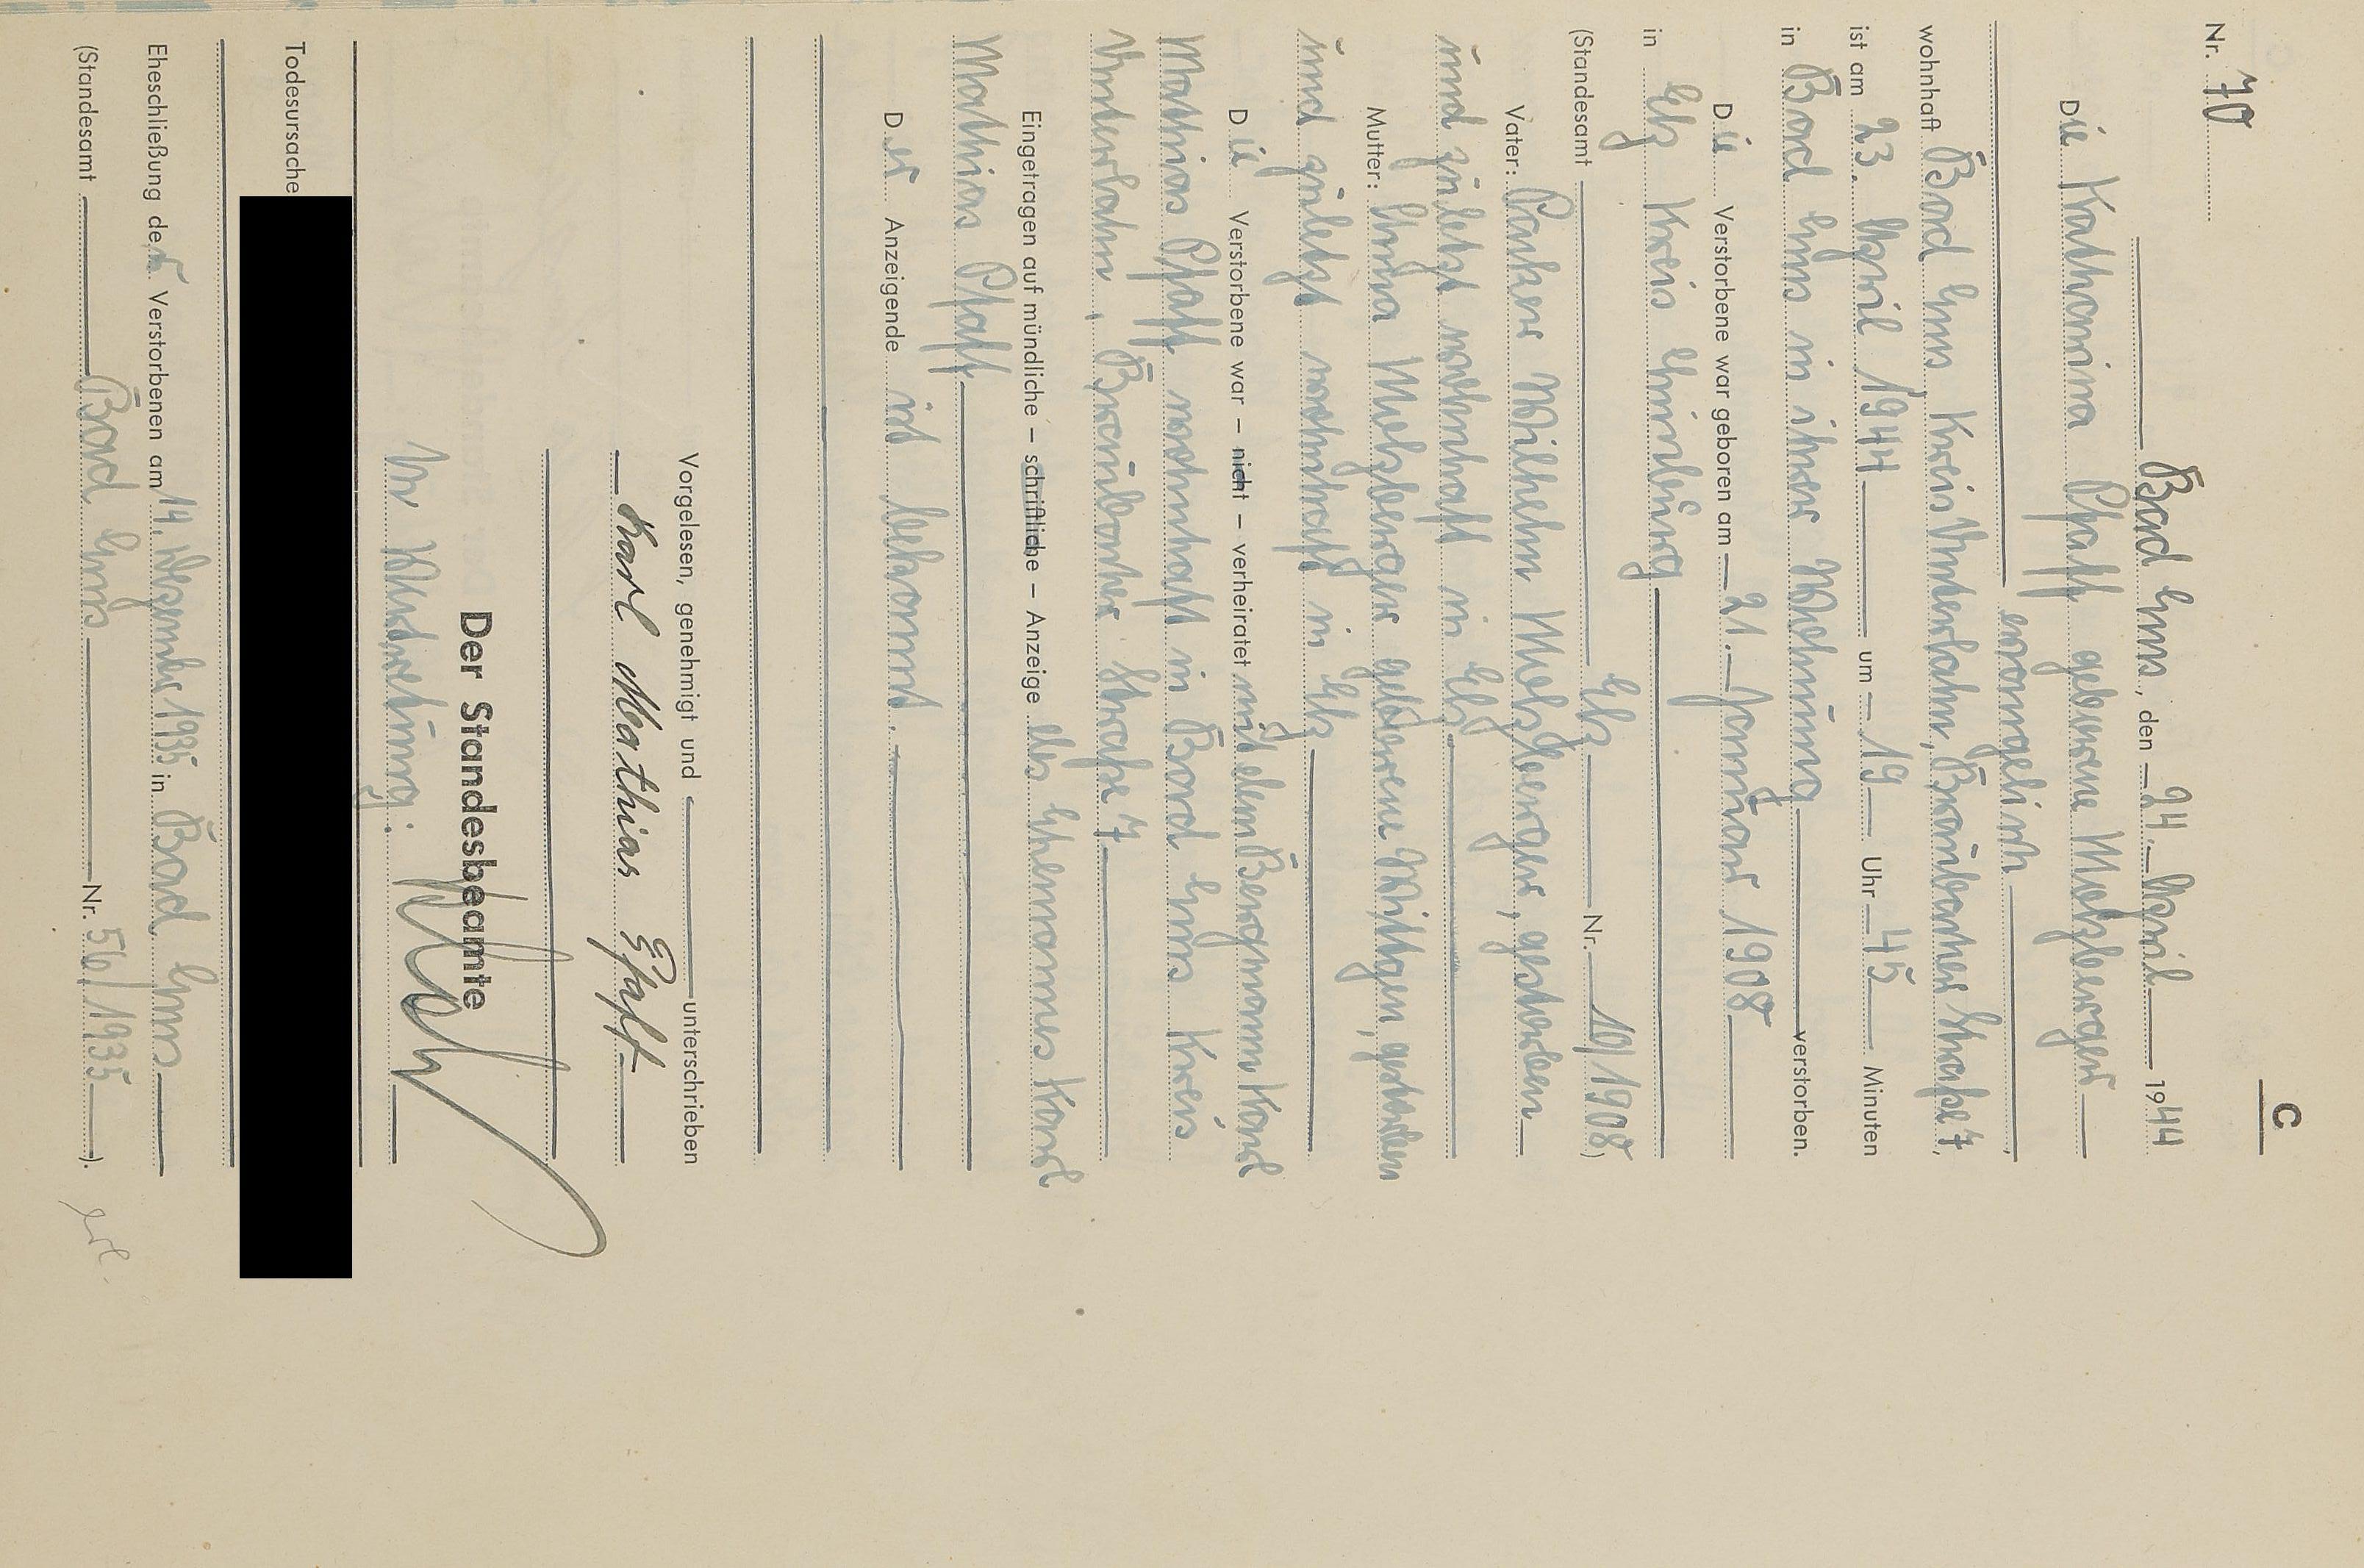 C
Nr. 70
Bad Ems, den 24. April 1944
Die Katharina Pfaff geborene Metzberger
evangelisch
wohnhaft Bad Ems, Kreis Unterlahn, Braubacher Straße 7,
ist am 23. April 1944 um 19 Uhr 45 Minuten
in Bad Ems in ihrer Wohnung verstorben.
Die Verstorbene war geboren am 21. Januar 1908
in Elz Kreis Limburg
(Standesamt Elz Nr. 19/1908)
Vater: Wilhelm Metzberger, gestorben
und zuletzt wohnhaft in Elz
Mutter: Anna Metzberger geborene gestorben
und zuletzt wohnhaft in Elz
Die Verstorbene war – nicht – verheiratet mit dem Bergmann Karl
Mathias Pfaff wohnhaft in Bad Ems Kreis
Unterlahn, Braubacher Straße 7
Eingetragen auf mündliche – schriftliche – Anzeige des Ehemannes Karl
Mathias Pfaff
Der Anzeigende ist bekannt.
Vorgelesen, genehmigt und unterschrieben
Karl Mathias Pfaff
Der Standesbeamte
In Vertretung:
Todesursache
Eheschließung der Verstorbenen am 14. Dezember 1935 in Bad Ems
(Standesamt Bad Ems Nr. 56/1935).
erl.